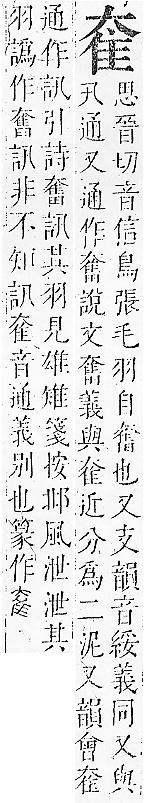 奞
思晉切音信鳥張毛羽自奮也又支韻音綏義同又與
卂通又通作奮說文奮義與奞近分爲二泥又韻會奞
通作訊引詩奮訊其羽見雄雉箋按邶風泄泄其
羽譌作奮訊非不知訊奞音通義別也篆作奞